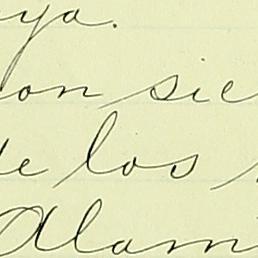 ya.
on sie
de los
Alam